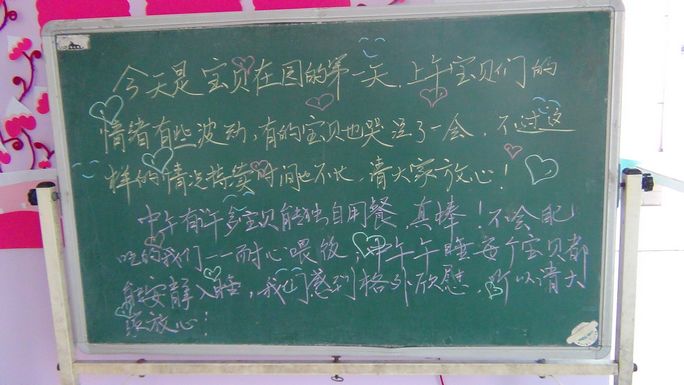 今天是宝贝在园的第一天,上午宝贝们的
情绪有些波动,有的宝贝也哭泣了一会,不过这
样的情况持续时间也不长,请大家放心!
中午有许多宝贝能独自用餐,真棒!不会自己
吃的我们一一耐心喂饭,中午午睡每个宝贝都
能安静入睡,我们感到格外欣慰,所以请大
家放心!